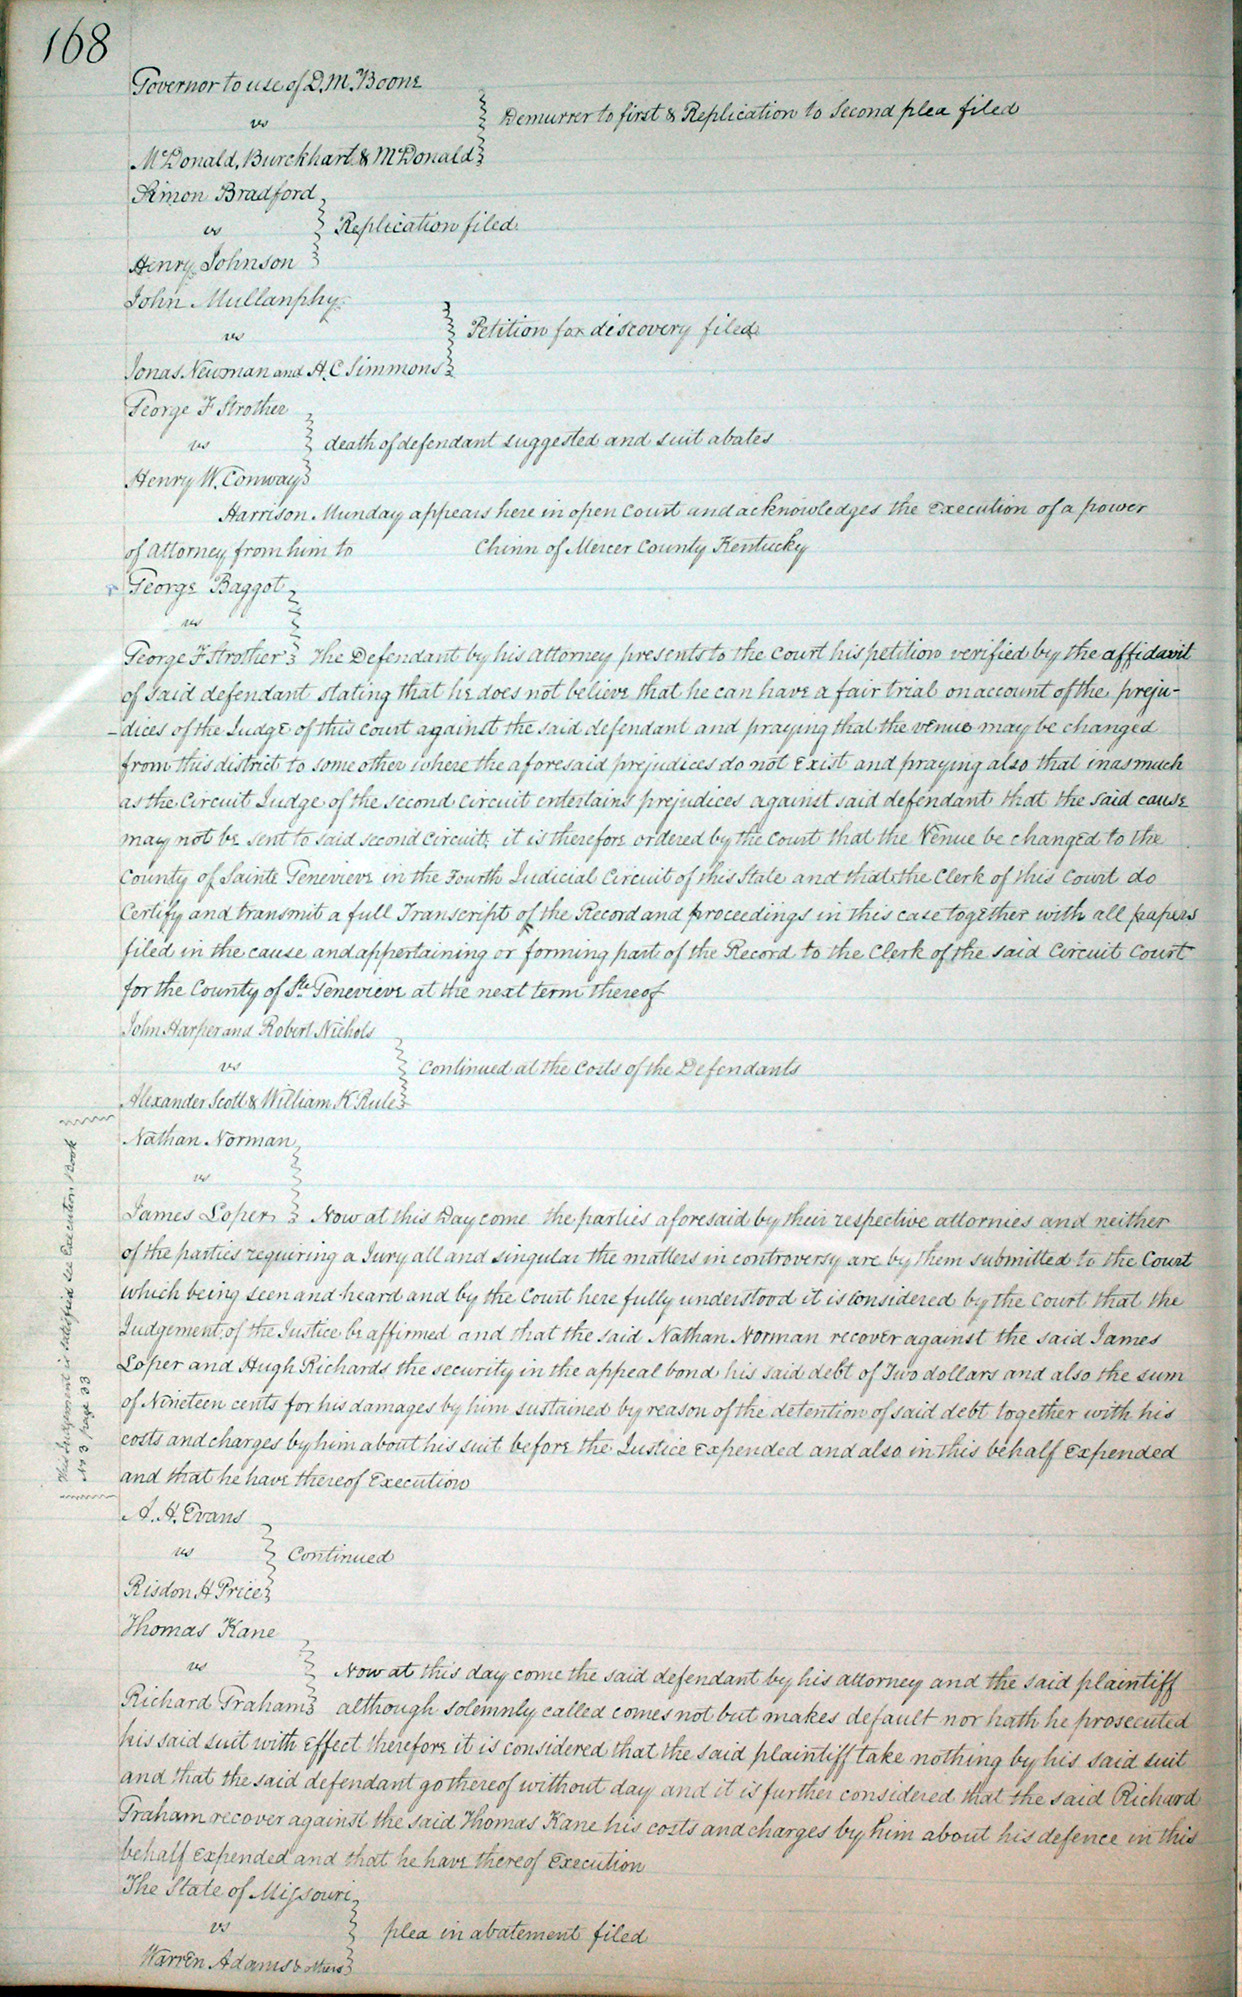 168
Governor to use of D. M. Boone
vs
Demurrer to first & Replication to Second plea filed
McDonald, Burckhart & McDonald
Simon Bradford
vs
Replication filed
Henry Johnson
John Mullanphy
vs
Petition for discovery filed
Jonas Newman and H. C Simmons
George F Strother
vs
death of defendant suggested and suit abates
Henry W. Conway
Harrison Munday appears here in open Court and acknowledges the Execution of a power
of Attorney from him to Chinn of Mercer County Kentucky
George Baggot
vs
George F Strother The Defendant by his Attorney presents to the Court his petition verified by the affidavit
of said defendant stating that he does not believe that he can have a fair trial on account of the preju-
dices of the Judge of this Court against the said defendant and praying that the venue may be changed
from this district to some other where the aforesaid prejudices do not Exist and praying also that inasmuch
as the Circuit Judge of the second Circuit entertains prejudices against said defendant that the said cause
may not be sent to said second Circuit; it is therefore ordered by the Court that the Venue be changed to the
County of Sainte Genevieve in the Fourth Judicial Circuit of this State and that the Clerk of this Court do
Certify and transmit a full Transcript of the Record and proceedings in this case together with all papers
filed in the cause and appertaining or forming part of the Record to the Clerk of the said Circuit Court
for the County of Ste Genevieve at the next term thereof
John Harper and Robert Nichols
vs
Continued at the Costs of the Defendants
Alexander Scott & William K Rule
Nathan Norman
vs
James Loper Now at this Day come the parties aforesaid by their respective attornies and neither
of the parties requiring a Jury all and singular the matters in controversy are by them submitted to the Court
which being seen and heard and by the Court here fully understood it is Considered by the Court that the
Judgement of the Justice be affirmed and that the said Nathan Norman recover against the said James
Loper and Hugh Richards the security in the appeal bond his said debt of Two dollars and also the sum
of Nineteen cents for his damages by him sustained by reason of the detention of said debt together with his
costs and charges by him about his suit before the Justice Expended and also in this behalf Expended
and that he have thereof Execution
This Judgement is satisfied see Execution Book
No 3 page 33
A. H. Evans
vs
Continued
Risdon H Price
Thomas Kane
vs
Now at this day come the said defendant by his attorney and the said plaintiff
Richard Graham although solemnly called comes not but makes default nor hath he prosecuted
his said suit with Effect therefore it is considered that the said plaintiff take nothing by his said suit
and that the said defendant go thereof without day and it is further considered that the said Richard
Graham recover against the said Thomas Kane his costs and charges by him about his defence in this
behalf Expended and that he have thereof Execution
The State of Missouri
vs
plea in abatement filed
Warren Adams & others